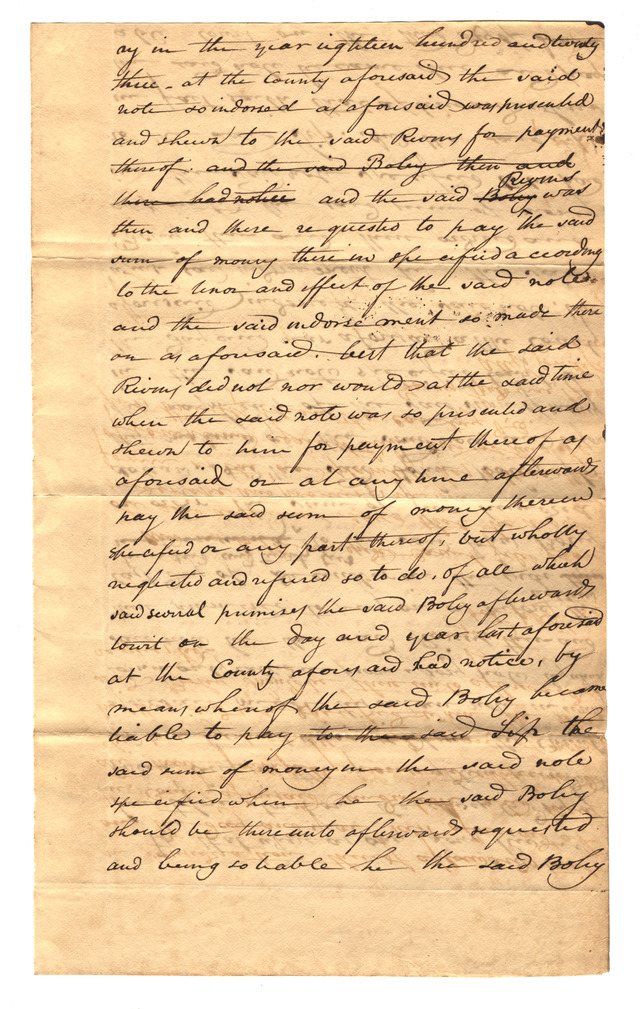 ry in the year eighteen hundred and twenty
three - at the County aforesaid the said
note so indorsed as aforesaid was presented
and shewn to the said Rivers for payment
thereof. and the said Boley then and
Rivers
there had notice and the said Boley was
then and there requested to pay the said
sum of money there in specified according
to the tenor and effect of the said note
and the said indorsement so made there
on as aforesaid. but that the said
Rivers did not nor would at the said time
when the said note was so presented and
shewn to him for payment thereof as
aforesaid or at any time afterwards
pay the said sum of money therein
specified or any part thereof, but wholly
neglected and refused so to do, of all which
said several premises the said Boley afterwards
towit on the day and year last aforesaid
at the County aforesaid had notice, by
means whereof the said Boley became
liable to pay to the said the
said sum of money in the said note
specified when he the said Boley
should be there unto afterwards requested
and being so liable he the said Boley